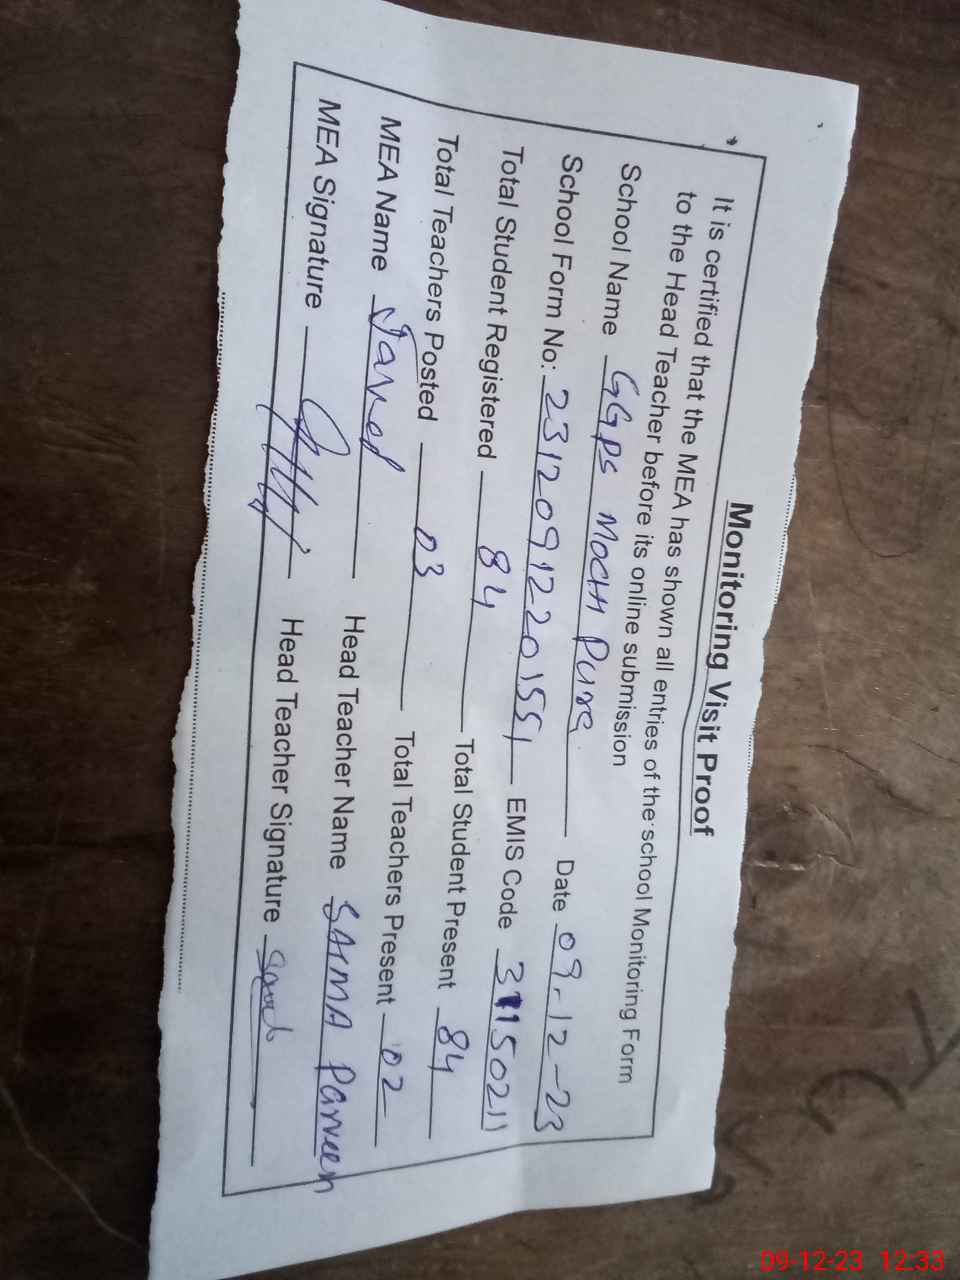 Monitoring Visit Proof
It is certified that the MEA has shown all entries of the school Monitoring Form
to the Head Teacher before its online submission
School Name GGPS MOCHI Pura Date 09-12-23
School Form No: 23120912201551 EMIS Code 31150211
Total Student Registered 84 Total Student Present 84
Total Teachers Posted 03 Total Teachers Present 02
MEA Name Javed Head Teacher Name SAIMA Parveen
MEA Signature Head Teacher Signature
09-12-23 12:33